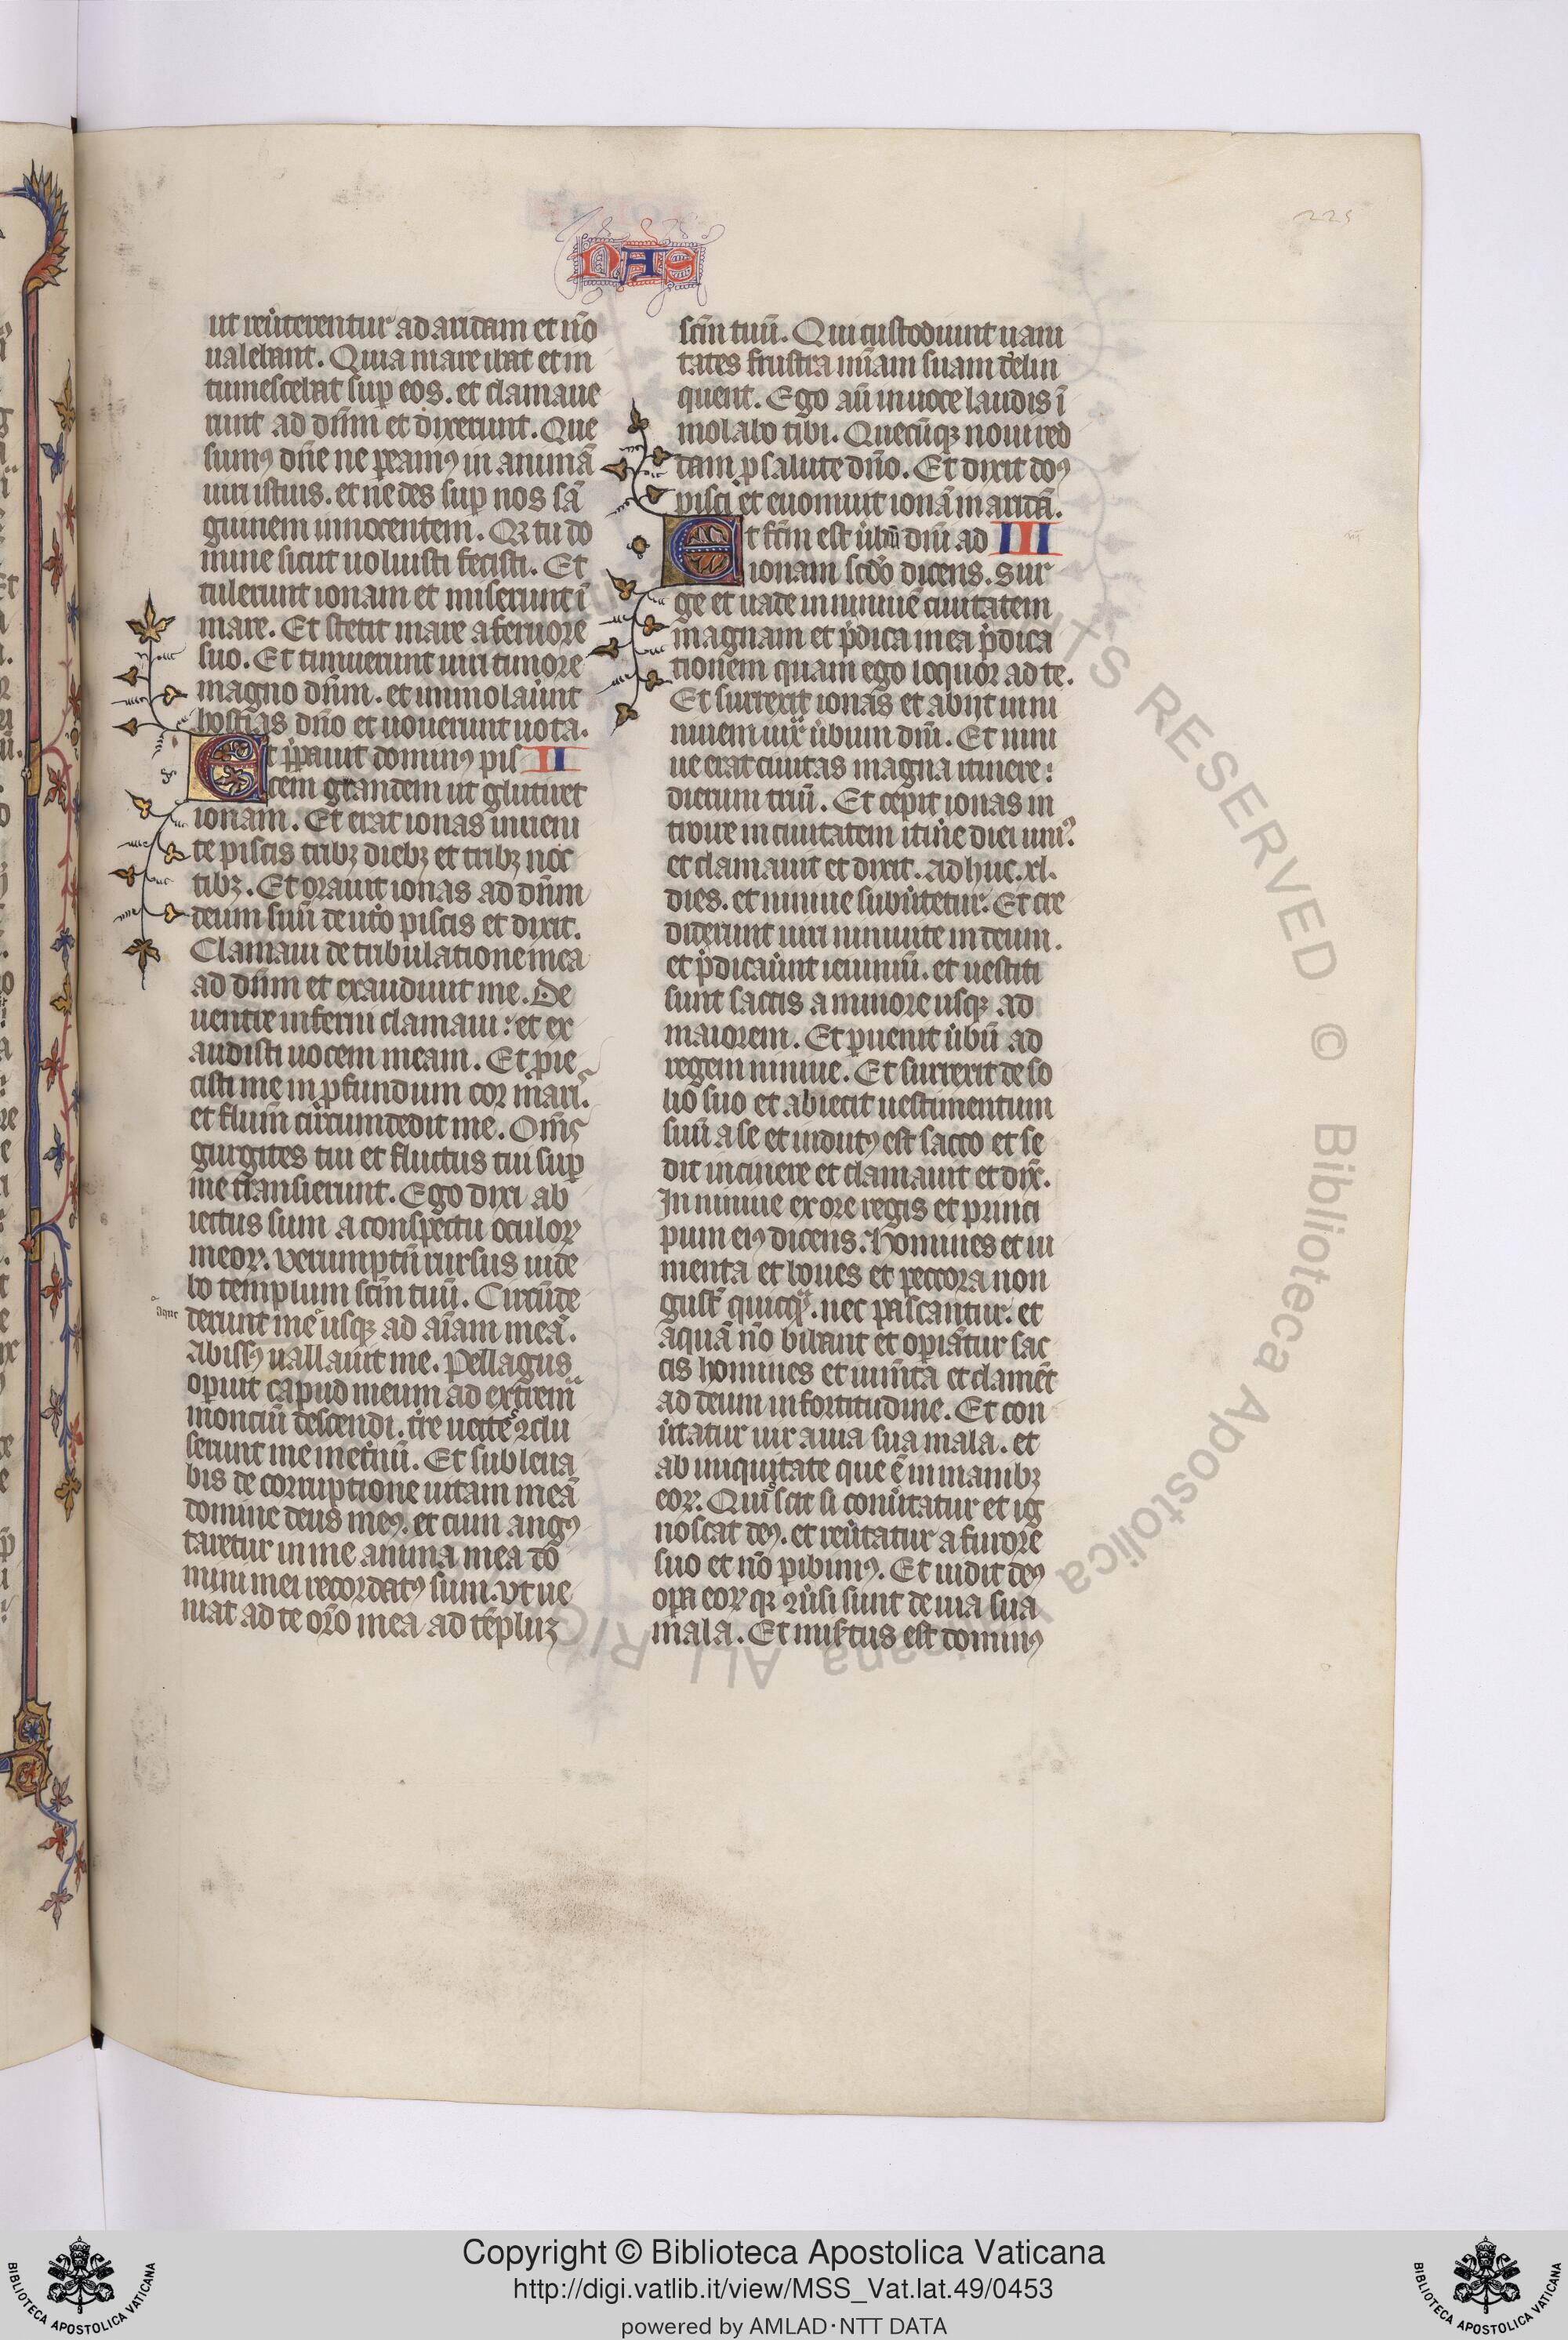 225
NAS
ut reu̾terentur ad aridam et nō
ualebant. Quia mare ibat et in
tumescebat sup̱ eos. et clamaue
runt ad dn̄m et dixerunt. Que
sumꝰ dn̄e ne ꝑeamꝰ in animā
uiri istius. et ne des suꝑ nos sā
guinem innocentem. Qꝫ tu do
mine sicut uoluisti fecisti. Et
tulerunt ionam et miserunt ī
mare. Et stetit mare a feruore
suo. Et timuerunt uiri timore
magno dn̄m. et immolau̾unt
hostias dn̄o et uouerunt uota.
Et p̄ꝑauit dominꝰ pis II
cem grandem ut glutiret
ionam. Et erat ionas in uent
te piscis tribꝫ diebꝫ et tribꝫ noc
tibꝫ. Et orauit ionas ad dn̄m
deum suū de ut̾o piscis et dixit.
Clamaui de tribulatione mea
ad dn̄m et exaudiuit me. De
uentre inferni clamaui: et ex
audisti uocem meam. Et ꝓie
cisti me in ꝓfundum cor marꝭ.
et flum̄ circumdedit me. Om̄s
gurgites tui et fluctus tui suꝑ
me transierunt. Ego dixi ab
iectus sum a conspectu oculoꝝ
meoꝝ. verumptn̄ rursus uide
bo templum scm̄ tuū. Circūde
aque
derunt me usqꝫ ad aīam meā.
Abissꝰ uallauit me. Pellagus
opuit capud meum ad extremū
monciū descendi. t̾re uectes ꝯclu
serunt me inet̾nū. Et subleua
bis de corruptione uitam meā
domine deus meꝰ. et cum angꝰ
taretur in me anima mea do
mini mei recordatꝰ sum. vt ue
niat ad te or̄o mea ad tēpluꝫ
scm̄ tuū. Qui custodiunt uani
tates frustra mīam suam delin
quent. Ego aū in uoce laudis ī
molabo tibi. Quecūqꝫ noui red
dam ꝓ salute dn̄o. Et dixit dꝰs
pisci et euomuit ionā in aridā.
Et fc̄m est u̾bū dn̄i ad III
ionam scd̄o dicens. Sur
ge et uade in niniuē ciuitatem
magnam et p̄dica in ea p̄dica
tionem quam ego loquor ad te.
Et surrexit ionas et abijt in ni
niuem iuxͣ u̾bum dn̄i. Et nini
ue erat ciuitas magna itinere:
dierum triū. Et cepit ionas in
troire in ciuitatem itin̾e diei uniꝰ.
et clamauit et dixit. adhuc .xl.
dies. et niniue subu̾tetur. Et cre
diderunt uiri niniuite in deum.
et p̄dicau̾unt ieiuniū. et uestiti
sunt saccis a minore usqꝫ ad
maiorem. Et ꝑuenit u̾bū ad
regem niniue. Et surrexit de so
lio suo et abiecit uestimentum
suū a se et indutꝰ est sacco et se
dit in cinere et clamauit et dix̄.
In niniue ex ore regis et princi
pum eiꝰ dicens. Homines et iu
menta et boues et peccora non
gustͤt quicqͣ. nec pascantur. et
aquā nō bibant et opiātur sac
cis homines et iumn̄ta et clamēt
ad deum in fortitudine. Et con
u̾tatur uir a uia sua mala. et
ab iniquitate que ē in manibꝫ
eoꝝ. Quis scit si conu̾tatur et ig
noscat deꝰ. et reu̾tatur a furore
suo et nō ꝑibimꝰ. Et uidit deꝰ
oꝑa eoꝝ qꝫ ꝯu̾si sunt de uia sua
mala. Et miſ̾tus est dominꝰ
RIGHTS RESERVED © Biblioteca Apostolica Vaticana ALL RIG
Copyright © Biblioteca Apostolica Vaticana
http://digi.vatlib.it/view/MSS_Vat.lat.49/0453
powered by AMLAD·NTT DATA
BIBLIOTECA APOSTOLICA VATICANA
BIBLIOTECA APOSTOLICA VATICANA